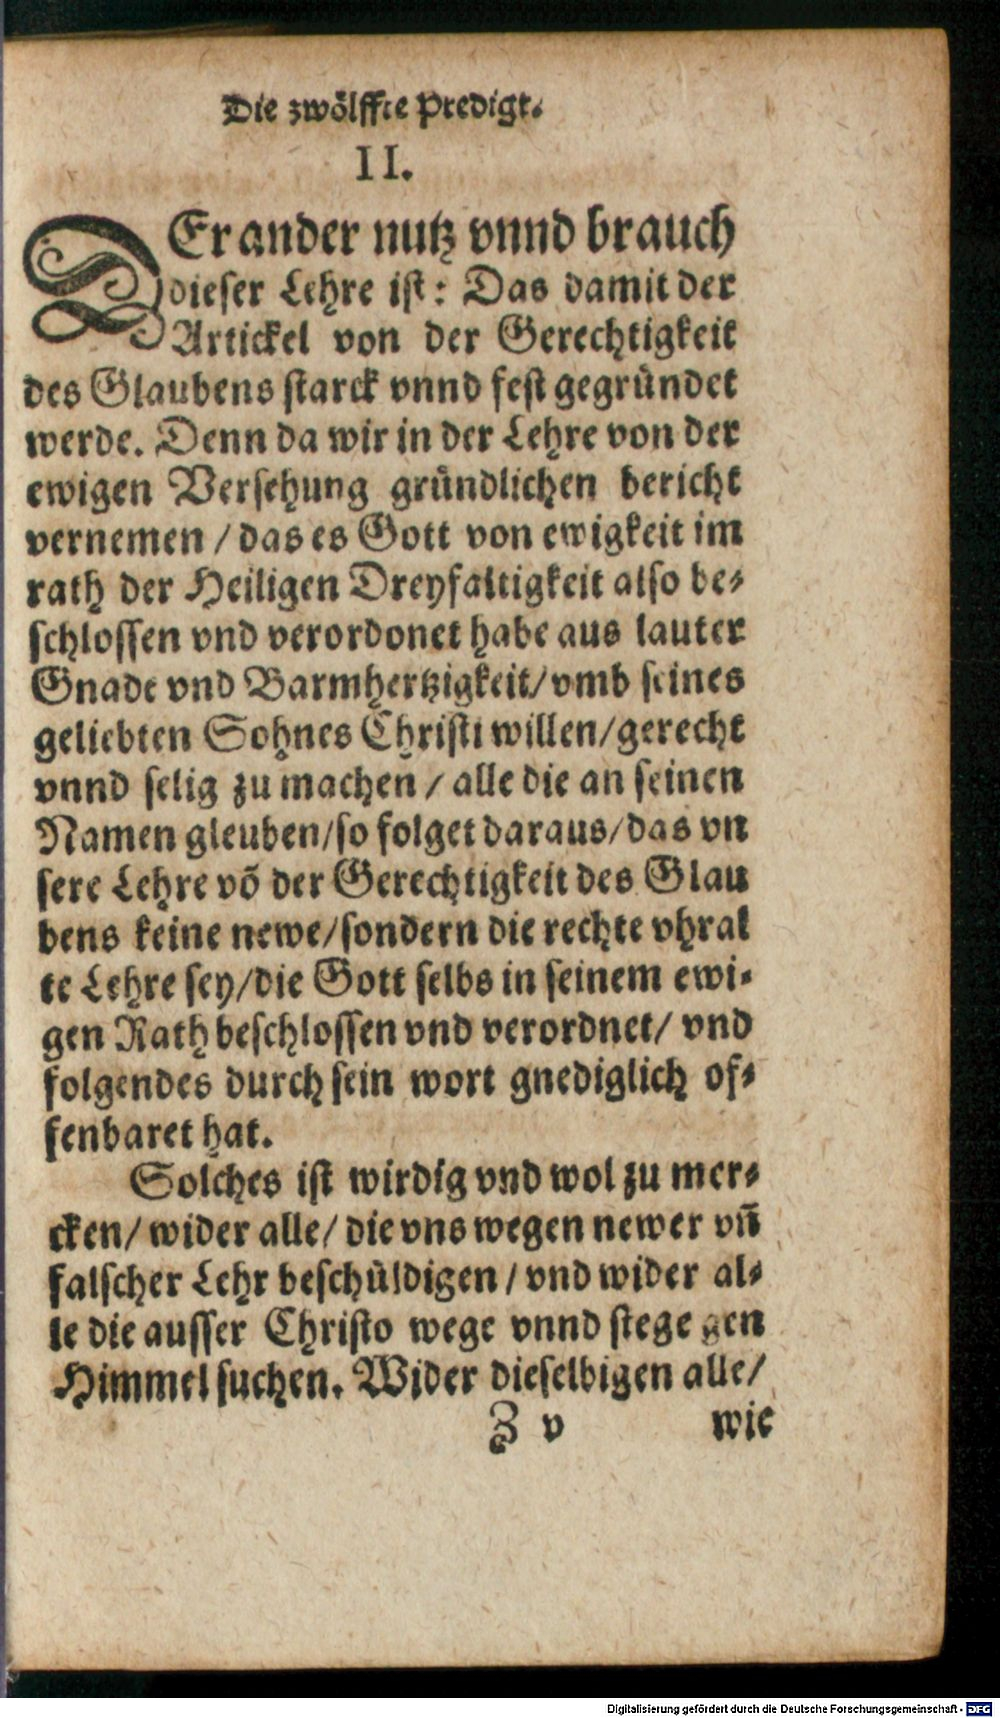 Die zwölffte Predigt.
II.
DEr ander nutz vnnd brauch
dieser Lehre ist: Das damit der
Artickel von der Gerechtigkeit
des Glaubens starck vnnd fest gegründet
werde. Denn da wir in der Lehre von der
ewigen Versehung gründlichen bericht
vernemen / das es Gott von ewigkeit im
rath der Heiligen Dreyfaltigkeit also be-
schlossen vnd verordonet habe aus lauter
Gnade vnd Barmhertzigkeit/ vmb seines
geliebten Sohnes Christi willen/gerecht
vnnd selig zu machen / alle die an seinen
Namen gleuben/so folget daraus/das vn
sere Lehre võ der Gerechtigkeit des Glau
bens keine newe/sondern die rechte vhral
te Lehre sey/die Gott selbs in seinem ewi-
gen Rath beschlossen vnd verordnet/ vnd
folgendes durch sein wort gnediglich of-
fenbaret hat.
Solches ist wirdig vnd wol zu mer-
cken/ wider alle/ die vns wegen newer vñ
falscher Lehr beschüldigen / vnd wider al-
le die ausser Christo wege vnnd stege gen
Himmel suchen. Wider dieselbigen alle/
Z v wie
Digitalisierung gefördert durch die Deutsche Forschungsgemeinschaft - DFG